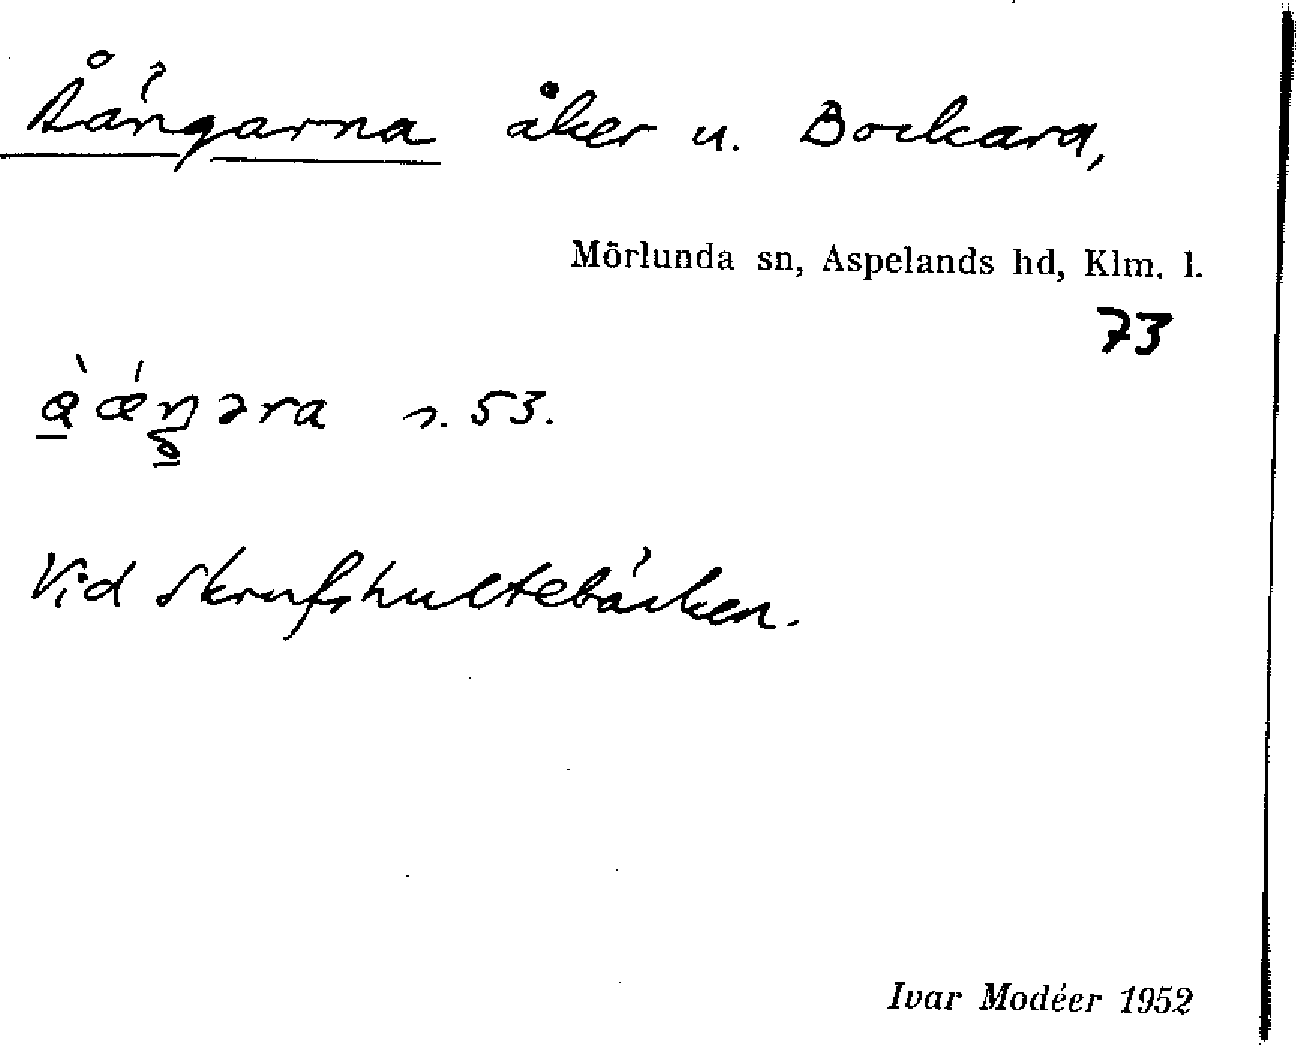 Åängarna åker u. Bockara,
Mörlunda sn, Aspelands hd, Klm. l.
73
s. 53.
Vid Skrufshultebäcken.
Ivar Modéer 1952